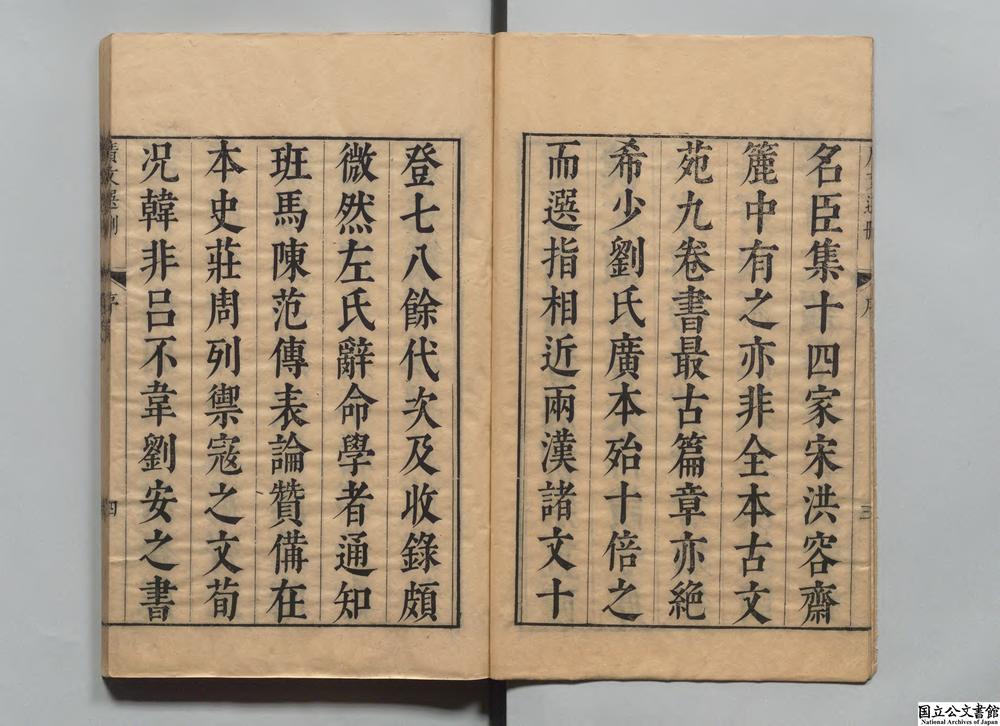 名臣集十四家宋洪容齋
簏中有之亦非全本古文
苑九卷書最古篇章亦絶
希少劉氏廣本殆十倍之
而選指相近兩漢諸文十
登七八餘代次及收錄頗
微然左氏辭命學者通知
班馬陳范傳表論贊備在
本史莊周列禦寇之文荀
況韓非呂不韋劉安之書
序
四
国立公文書館
National Archives of Japan